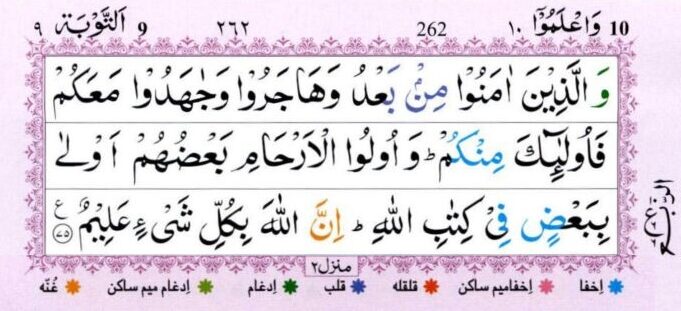 10 وَاعْلَمُوْٓا ١٠ 262 ٢٦٢ 9 اَلتَّوْبَة ٩
وَ الَّذِيْنَ اٰمَنُوْا مِنْۢ بَعْدُ وَهَاجَرُوْا وَجٰهَدُوْا مَعَكُمْ
فَاُولٰٓئِكَ مِنْكُمْ ؕ وَ اُولُوا الْاَرْحَامِ بَعْضُهُمْ اَوْلٰى
بِبَعْضٍ فِيْ كِتٰبِ اللّٰهِ ؕ اِنَّ اللّٰهَ بِكُلِّ شَيْءٍ عَلِيْمٌ ع ٧٥
منزل ٢
اِخفا اِخفامیم ساکن قلقله قلب اِدغام اِدغام میم ساکن غُنّه